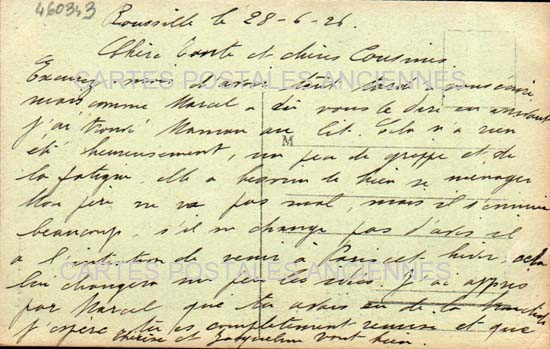 460343
Roussille le 28-6-26.
Chère Tante et chères Cousines
Excusez moi d'avoir tant tardé à vous écrire
mais comme Marcel a dû vous le dire en arrivant
j'ai trouvé Maman au lit. Cela n'a rien
été heureusement, un peu de grippe et de
la fatigue. Elle a besoin de bien se ménager
Mon père ne va pas mal, mais il s'ennuie
beaucoup, s'il ne change pas d'avis il
a l'intention de venir à Paris cet hiver, cela
lui changera un peu les idées. J'ai appris
par Marcel que tu avais eu de la
j'espère tu es complètement remise et que
Thérèse et Jacqueline vont bien.
M
CARTES POSTALES ANCIENNES
CARTES POSTALES ANCIENNES